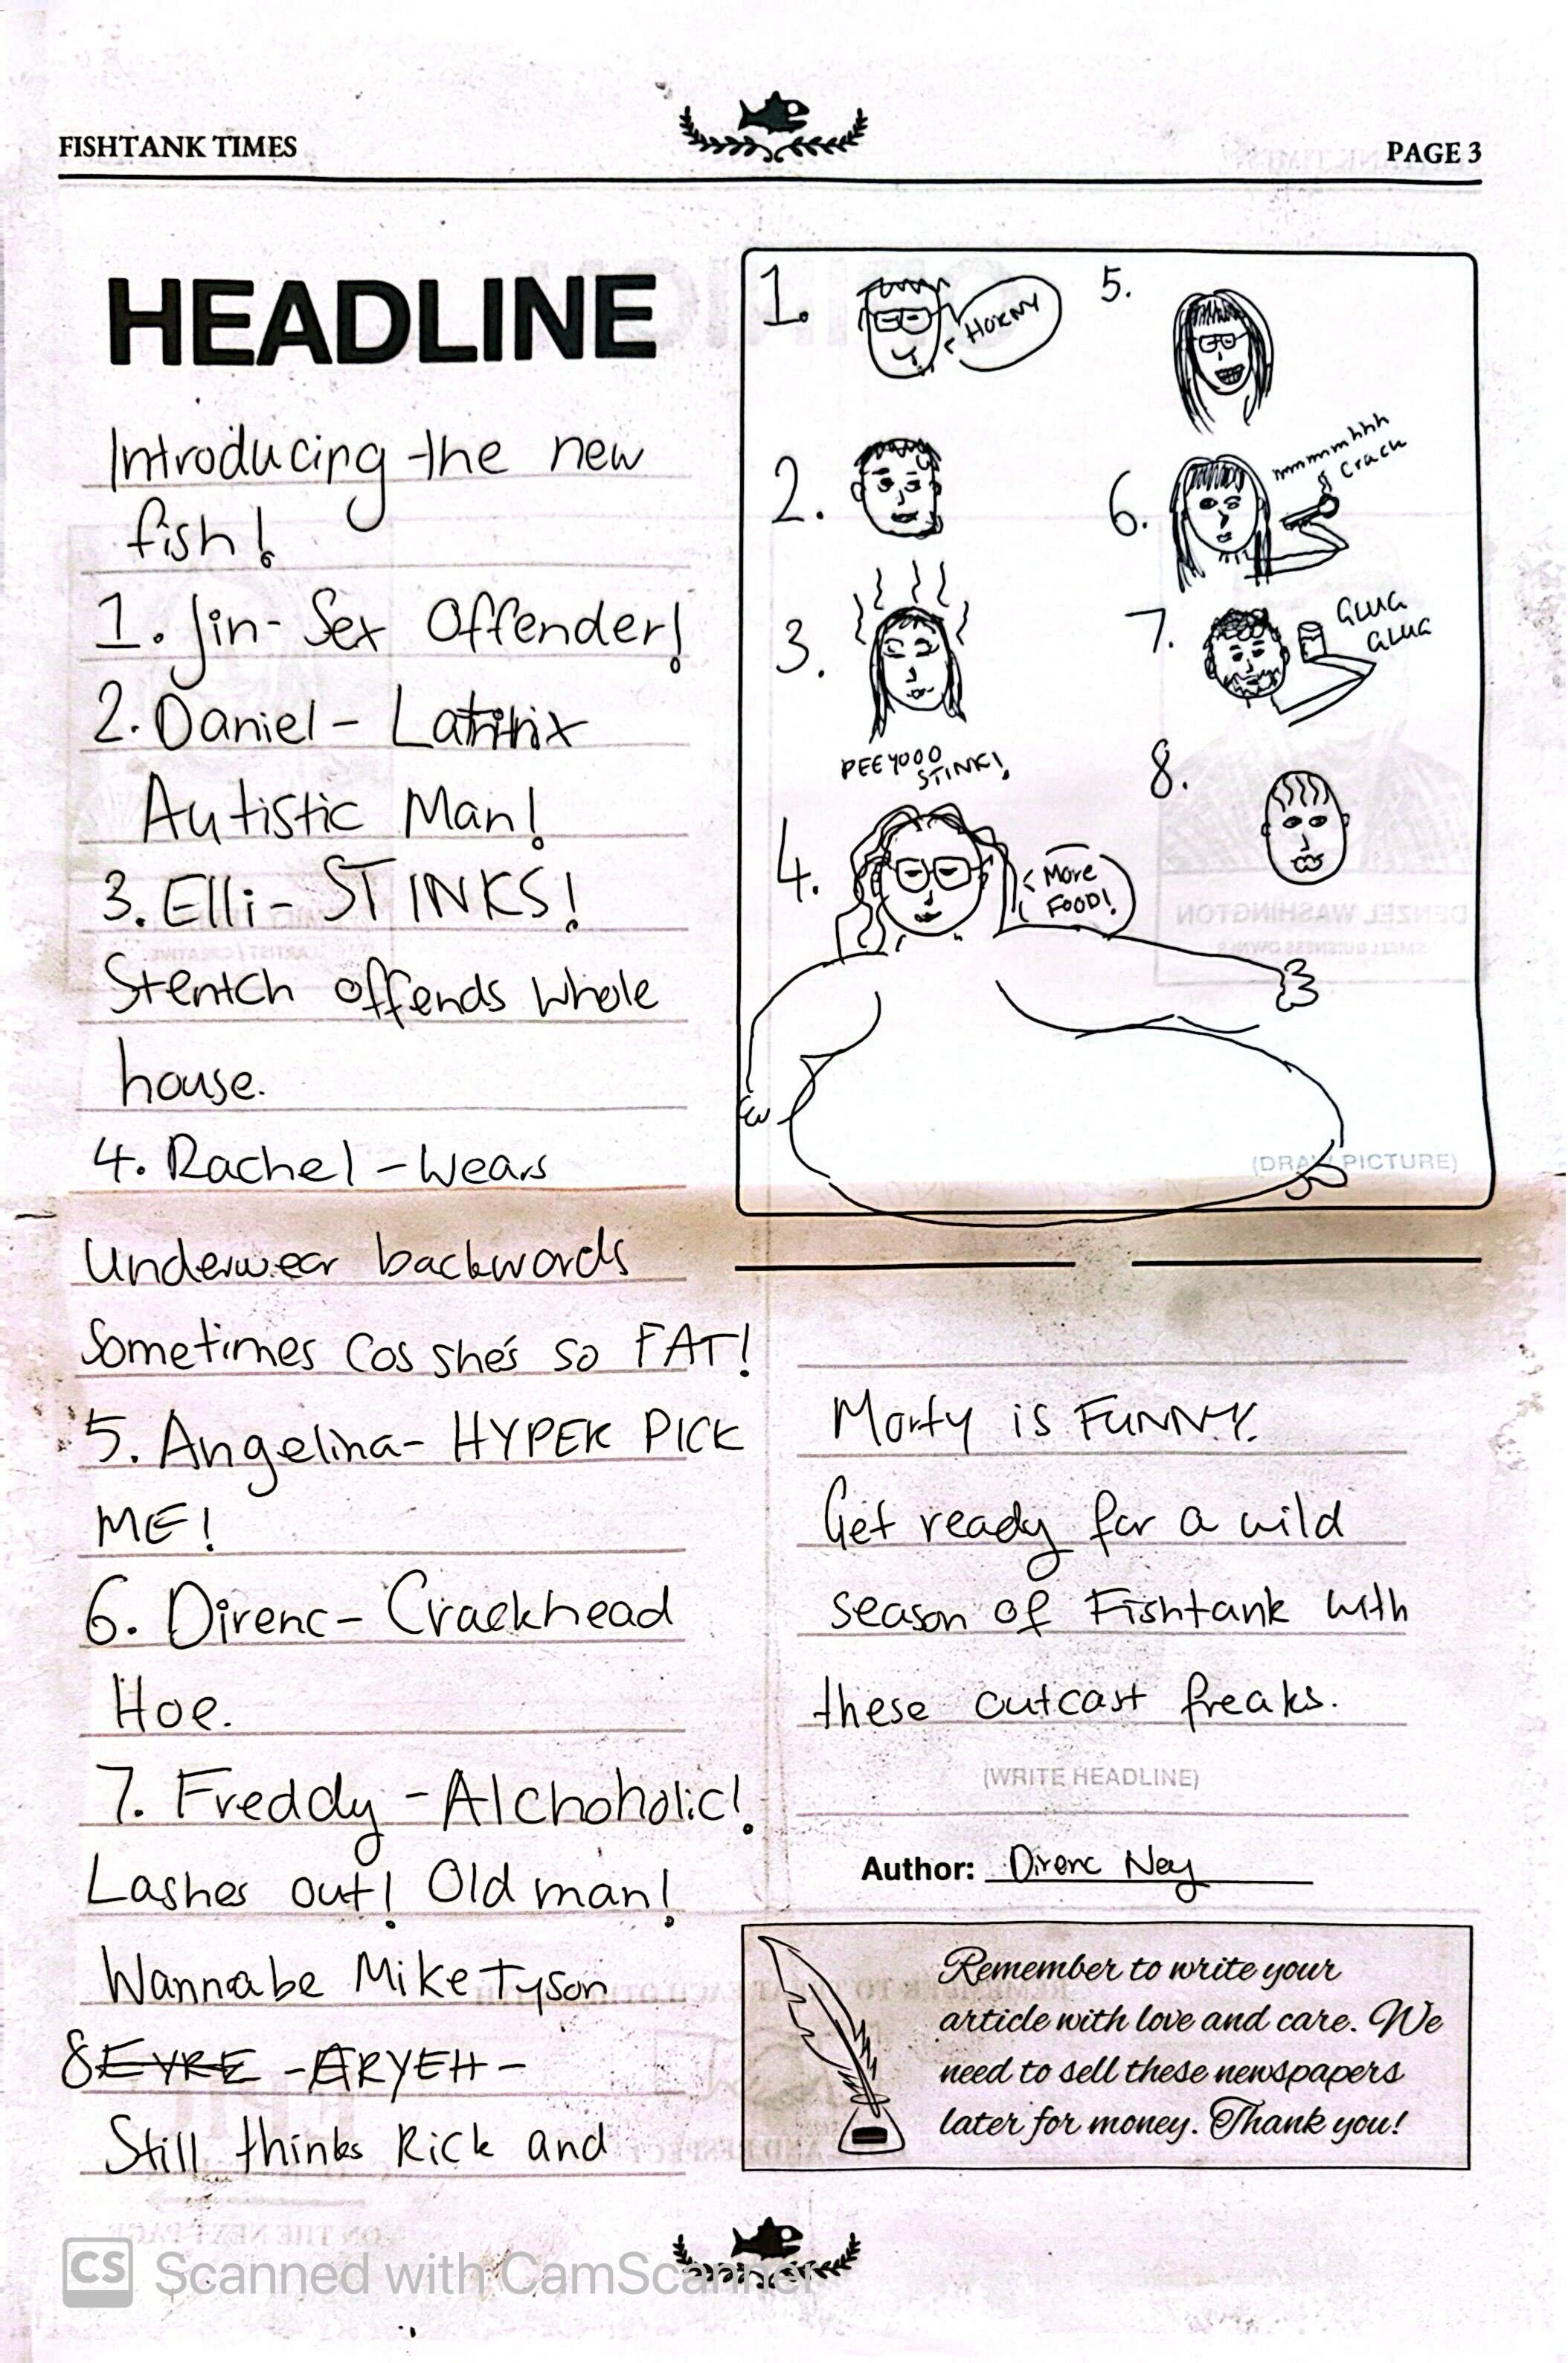 FISHTANK TIMES
PAGE 3
HEADLINE
Introducing the new
fish!
1. Jin- Sex Offender!
2. Daniel -
Autistic Man!
3. Elli- STINKS!
Stentch offends whole
house.
4. Rachel - Wears
Underwear backwords
Sometimes Cos she's so FAT!
5. Angelina- HYPER PICK
ME!
6. Direnc- Crackhead
Hoe.
7. Freddy - Alchoholic!
Lashes out! Old man!
Wannabe Mike Tyson
8 EYRE - ARYEH -
Still thinks Rick and
1.
HORNY
2.
3.
PEEYOOO
STINK!
4.
More
FOOD!
5.
6.
mmmmhhh
Crack
7.
GLUG
GLUG
8.
DENZEL WASHINGTON
(DRAW PICTURE)
Morty is FUNNY.
Get ready for a wild
season of Fishtank with
these outcast freaks.
(WRITE HEADLINE)
Author: Direnc Ney
Remember to write your
article with love and care. We
need to sell these newspapers
later for money. Thank you!
CS Scanned with CamScanner